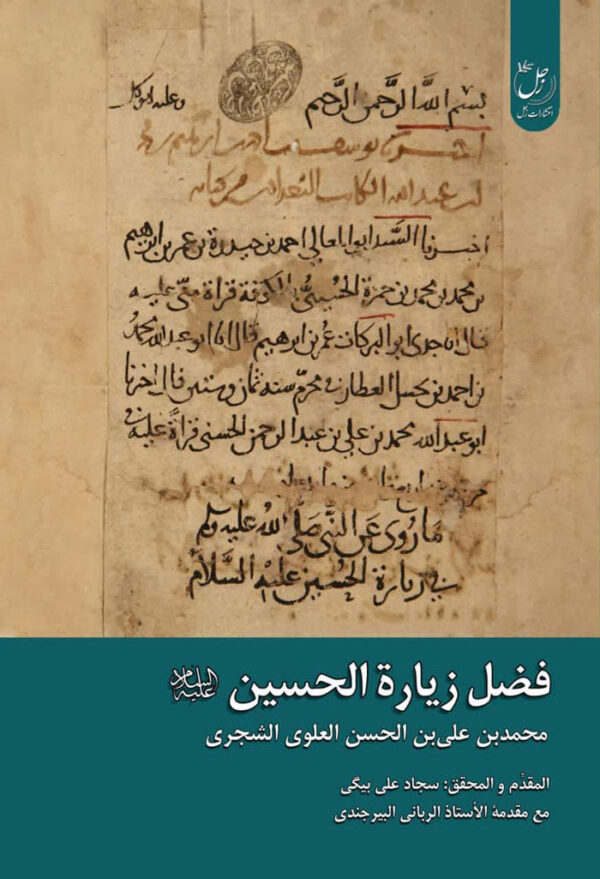 زحل
انتشارات زحل
بسم الله الرحمن الرحيم
وعليه اتوكل
اخبرنا السيد ابو المعالي احمد بن حيدرة بن عمر بن ابرهيم
بن محمد بن محمد بن حمزة الحسيني بالكوفة قراة مني عليه
قال انا جدي ابو البركات عمر بن ابرهيم قال انا ابو عبد الله محمد
بن احمد بن العطار في محرم سنه ثمان وستين قال اخبرنا
ابو عبد الله محمد بن علي بن عبد الرحمن الحسني قراةً عليه
ما روى عن النبي صلى الله عليه وسلم
في زيارة الحسين عليه السلام
فضل زيارة الحسين عليه‌السلام
محمدبن علی‌بن الحسن العلوی الشجری
المقدّم و المحقق: سجاد علی بیگی
مع مقدمهٔ الأستاذ الربانی البیرجندی